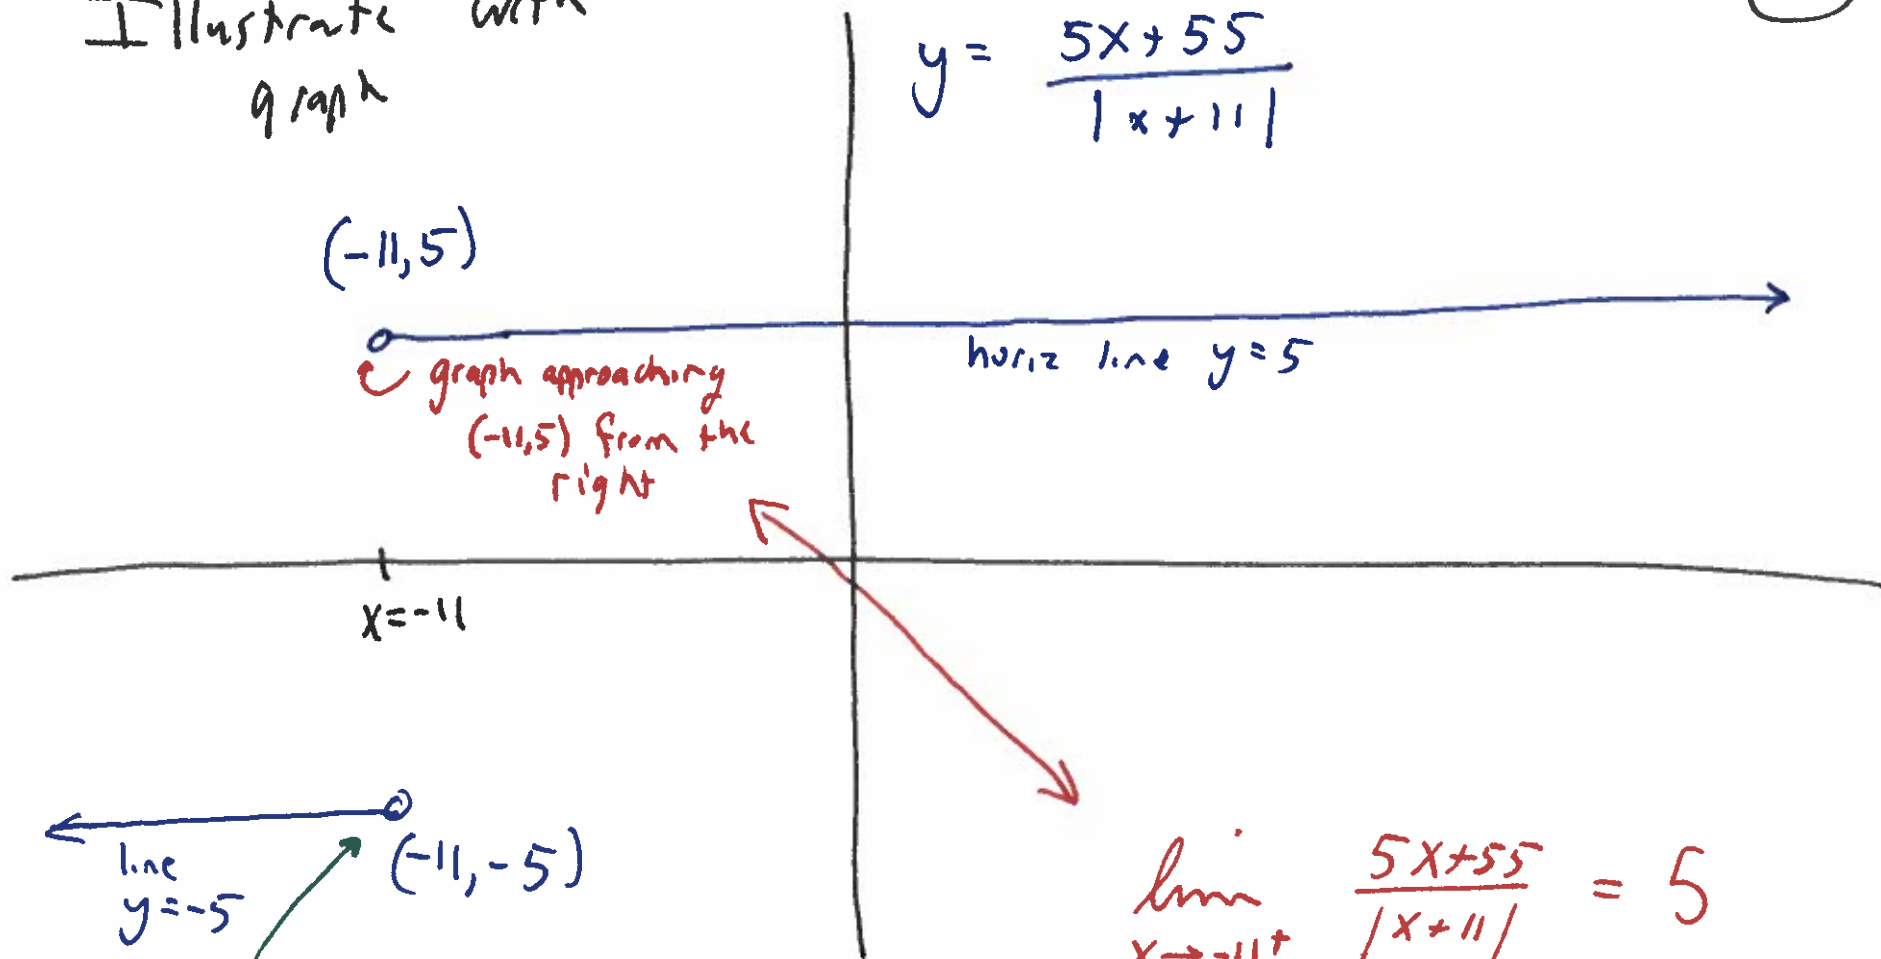 Illustrate with
graph
y = 5x+55
|x+11|
(-11,5)
horiz line y=5
graph approaching
(-11,5) from the
right
x=-11
(-11,-5)
line
y=-5
lim 5x+55 = 5
x→-11⁺ |x+11|